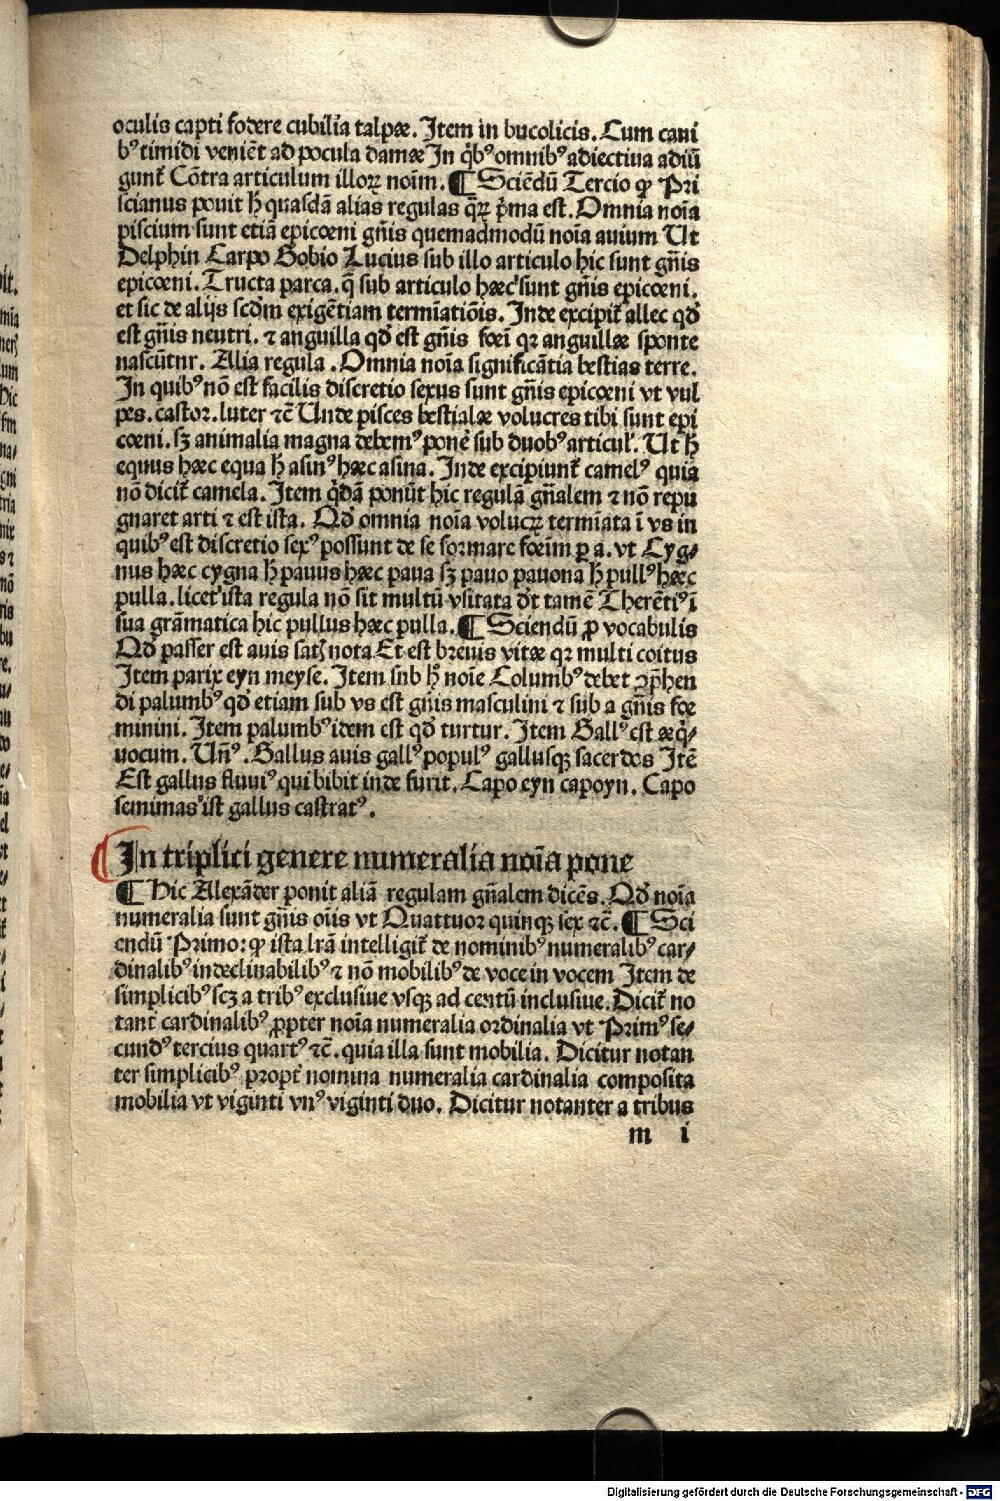 oculis capti fodere cubilia talpæ. Item in bucolicis. Cum cani
bꝰ timidi veniẽt ad pocula damæ In q̃bꝰ omnibꝰ adiectiua adiũ
gunt᷑ Cõtra articulum illoꝝ noĩm. ¶ Sciẽdũ Tercio ꝙ Pri
scianus ponit h̃ quasdã alias regulas q̃ꝝ p̃ma est. Omnia noĩa
piscium sunt etiã epicœni gñis quemadmodũ noĩa auium Ut
Delphin Carpo Gobio Lucius sub illo articulo hic sunt gñis
epicœni. Tructa parca. q̃ sub articulo hæc sunt gñis epicœni.
et sic de alijs scḋm exigẽtiam termĩatiõis. Inde excipit᷑ allec qḋ
est gñis neutri. ⁊ anguilla qḋ est gñis fœĩ qꝛ anguillæ sponte
nascũtur. Alia regula. Omnia noĩa significãtia bestias terre.
In quibꝰ nõ est facilis discretio sexus sunt gñis epicœni vt vul
pes. castor. luter ⁊c̃ Unde pisces bestialæ volucres tibi sunt epi
cœni. sꝫ animalia magna debemꝰ ponẽ sub duobꝰ articul᷑. Ut h̃
equus hæc equa h̃ asinꝰ hæc asina. Inde excipiunt᷑ camelꝰ quia
nõ dicit᷑ camela. Item q̃dã ponũt hic regulã gñalem ⁊ nõ repu
gnaret arti ⁊ est ista. Qḋ omnia noĩa volucꝝ termĩata ĩ vs in
quibꝰ est discretio sexꝰ possunt de se formare fœĩm ꝑ a. vt Cyg⸗
nus hæc cygna h̃ pauus hæc paua sꝫ pauo pauona h̃ pullꝰ hæc
pulla. licet ista regula nõ sit multũ vsitata dr̃t tamẽ Therẽtiꝰ ĩ
sua grãmatica hic pullus hæc pulla. ¶ Sciendũ ꝓ vocabulis
Qḋ passer est auis satꝭ nota Et est breuis vitæ qꝛ multi coitus
Item parix eyn meyse. Item sub h̊ noĩe Columbꝰ debet ꝯp̃hen
di palumbꝰ qḋ etiam sub vs est gñis masculini ⁊ sub a gñis fœ
minini. Item palumbꝰ idem est qḋ turtur. Item Gallꝰ est æq̃⸗
uocum. Uñꝰ. Gallus auis gallꝰ populꝰ gallusqꝫ sacerdos Itẽ
Est gallus fluuiꝰ qui bibit inde furit. Capo eyn capoyn. Capo
semimas ist gallus castratꝰ.
In triplici genere numeralia noĩa pone
¶ Hic Alexãder ponit aliã regulam gñalem dicẽs. Qḋ noĩa
numeralia sunt gñis oĩs vt Quattuor quinqꝫ sex ⁊c̃. ¶ Sci
endũ Primo: ꝙ ista lr̃a intelligit᷑ de nominibꝰ numeralibꝰ car⸗
dinalibꝰ indeclinabilibꝰ ⁊ nõ mobilibꝰ de voce in vocem Item de
simplicibꝰ scꝫ a tribꝰ exclusiue vsqꝫ ad centũ inclusiue. Dicit᷑ no
tant᷑ cardinalibꝰ ꝓpter noĩa numeralia ordinalia vt Primꝰ se⸗
cundꝰ tercius quartꝰ ⁊c̃. quia illa sunt mobilia. Dicitur notan
ter simplicibꝰ propt᷑ nomina numeralia cardinalia composita
mobilia vt viginti vnꝰ viginti duo. Dicitur notanter a tribus
m i
Digitalisierung gefördert durch die Deutsche Forschungsgemeinschaft - DFG